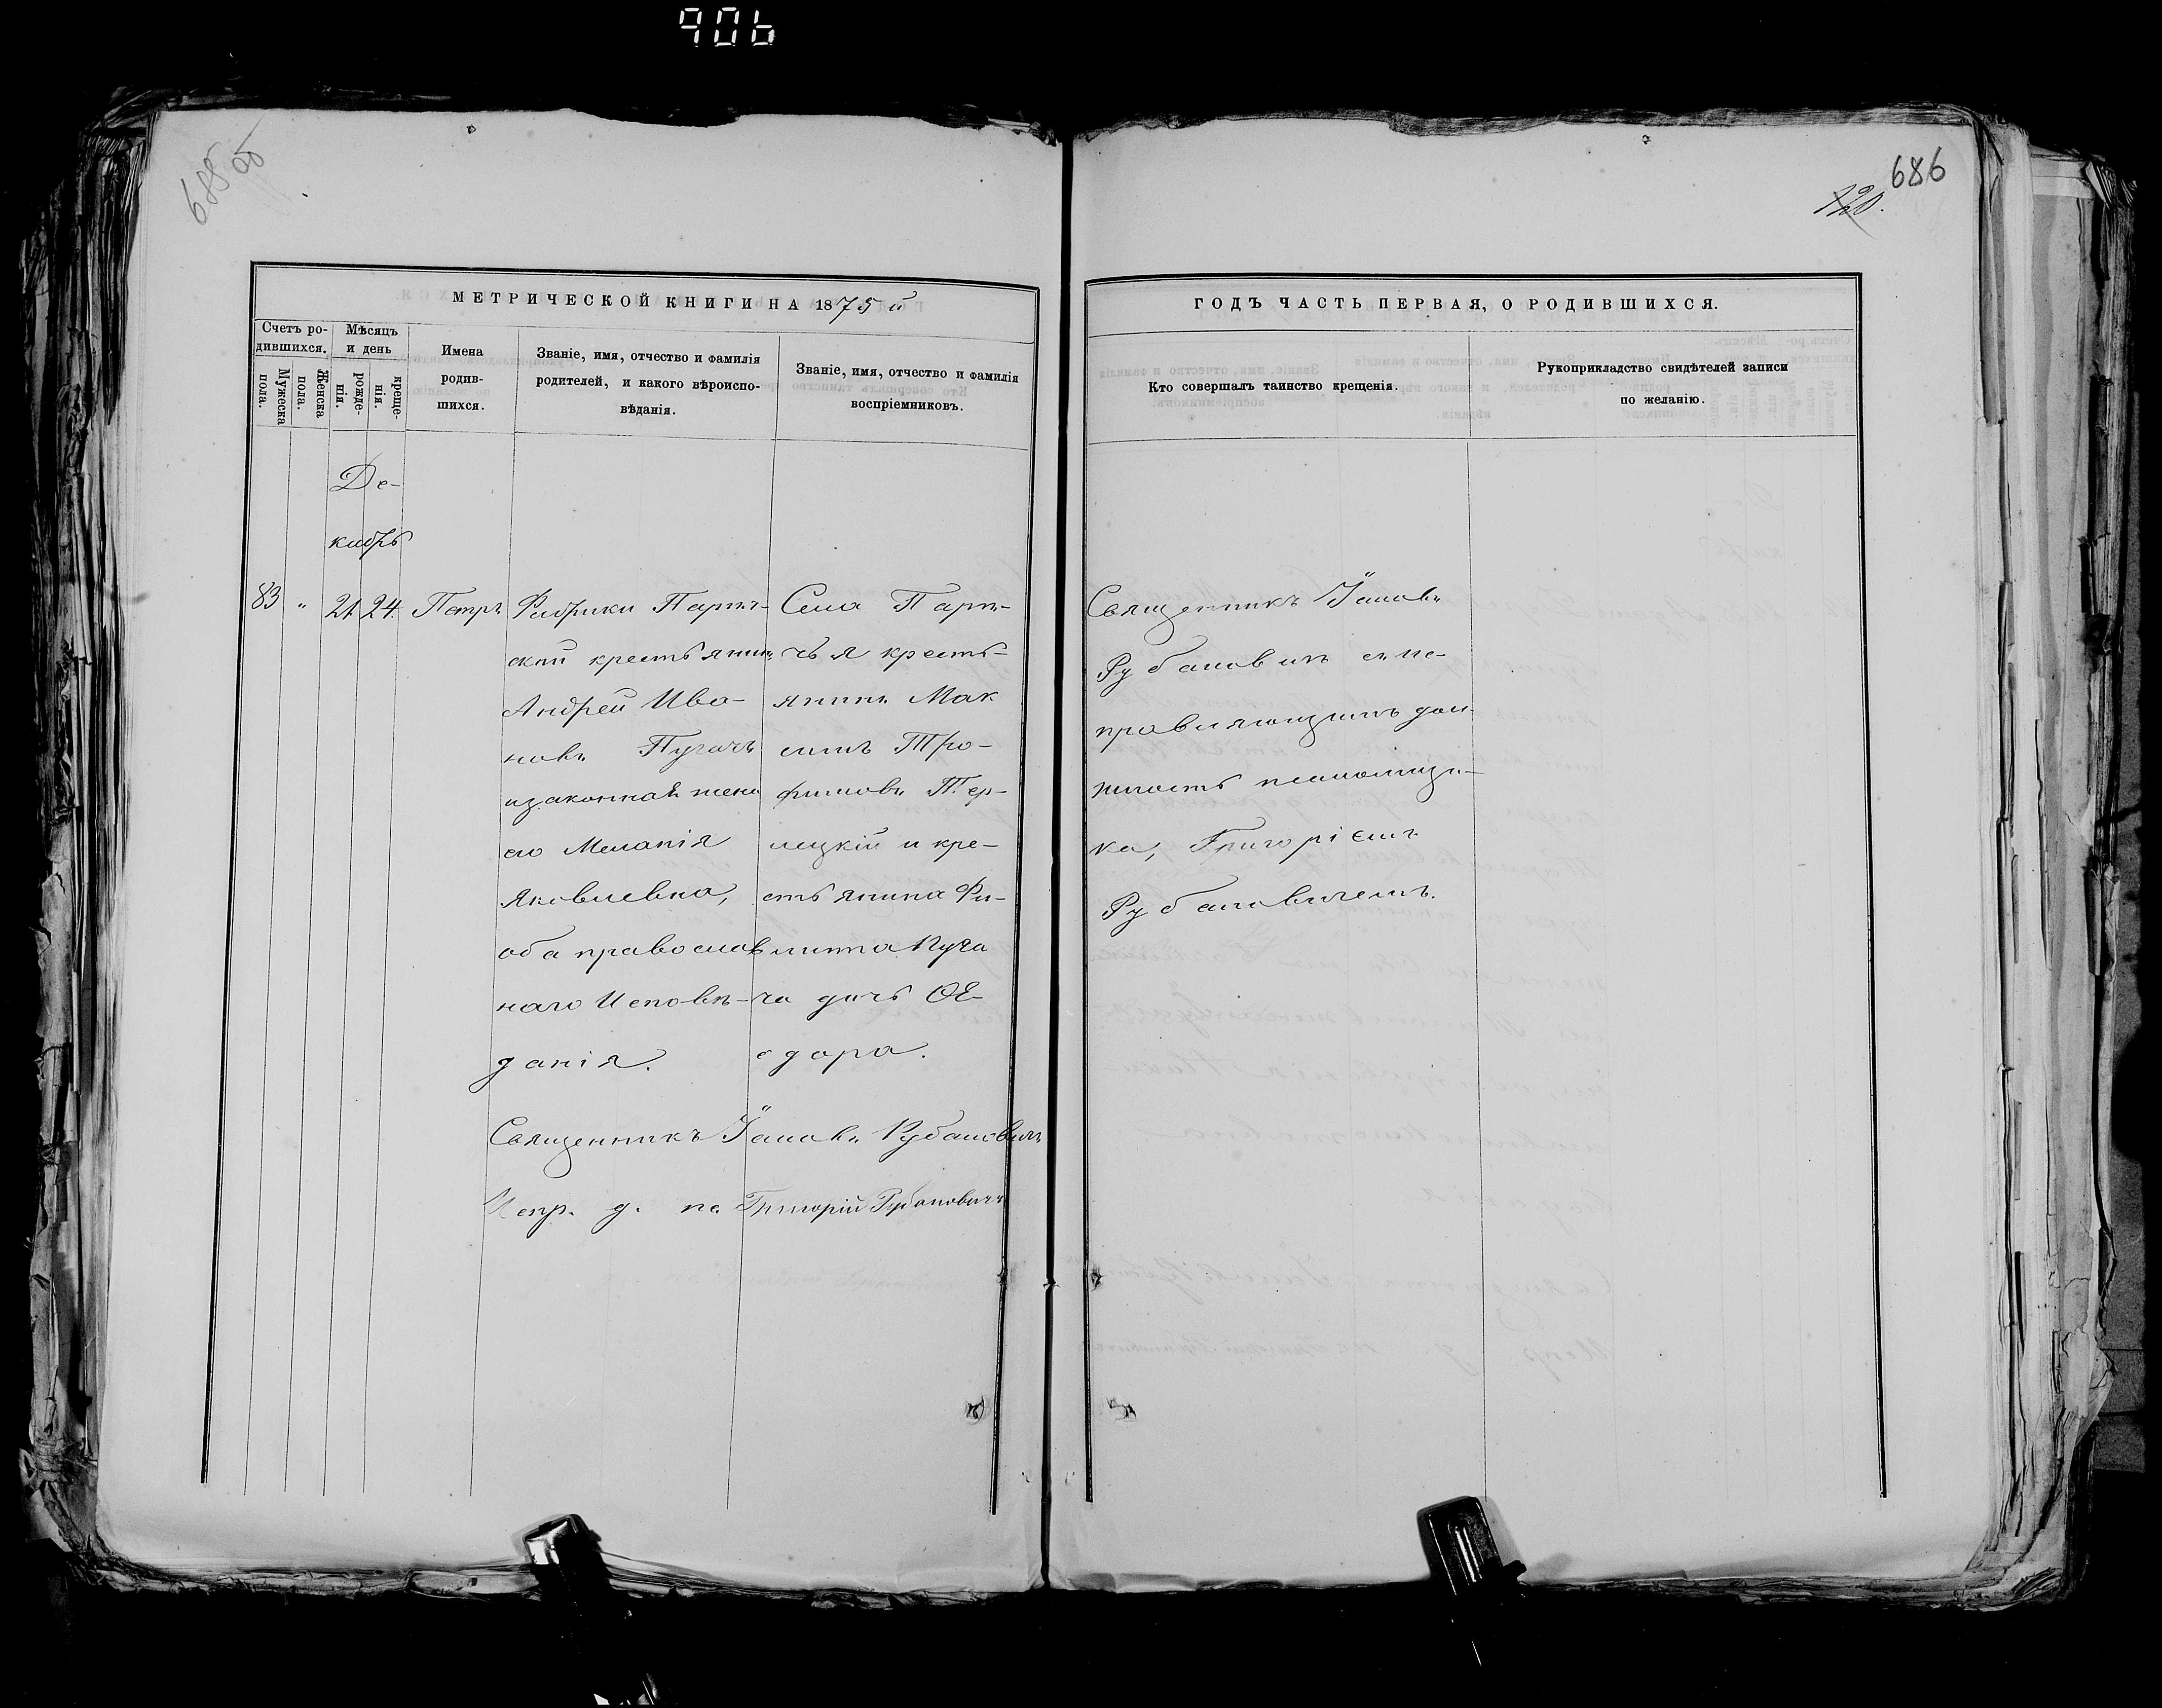 906
685 об
686
120.
МЕТРИЧЕСКОЙ КНИГИ НА 1875 й
ГОДЪ ЧАСТЬ ПЕРВАЯ, О РОДИВШИХСЯ.
Счетъ ро-
дившихся.
Мужеска
пола.
Женска
пола.
Мѣсяцъ
и день
рожде-
нія.
креще-
нія.
Имена
родив-
шихся.
Званіе, имя, отчество и фамилія
родителей, и какого вѣроиспо-
вѣданія.
Званіе, имя, отчество и фамилія
воспріемниковъ.
Кто совершалъ таинство крещенія.
Рукоприкладство свидѣтелей записи
по желанію.
Де-
кабрь
83 „ 21. 24. Петръ
Фабрики Парти-
ской крестьянинъ
Андрей Ива-
новъ Пугачъ
и законная жена
его Меланія
Яковлевна,
оба православ
наго Исповѣ-
данія.
Села Парти-
чья кресть-
янинъ Мак
симъ Тро-
фимовъ Тер-
лецкій и кре-
стьянина Фи-
липпа Пуга
ча дочь Ѳе-
одора.
Священникъ Іаковъ Рубановичъ
Испр. д. пс. Григорій Рубановичъ
Священникъ Іаковъ
Рубановичъ съ ис-
правляющимъ дол-
жность псаломщи-
ка, Григоріемъ
Рубановичемъ.